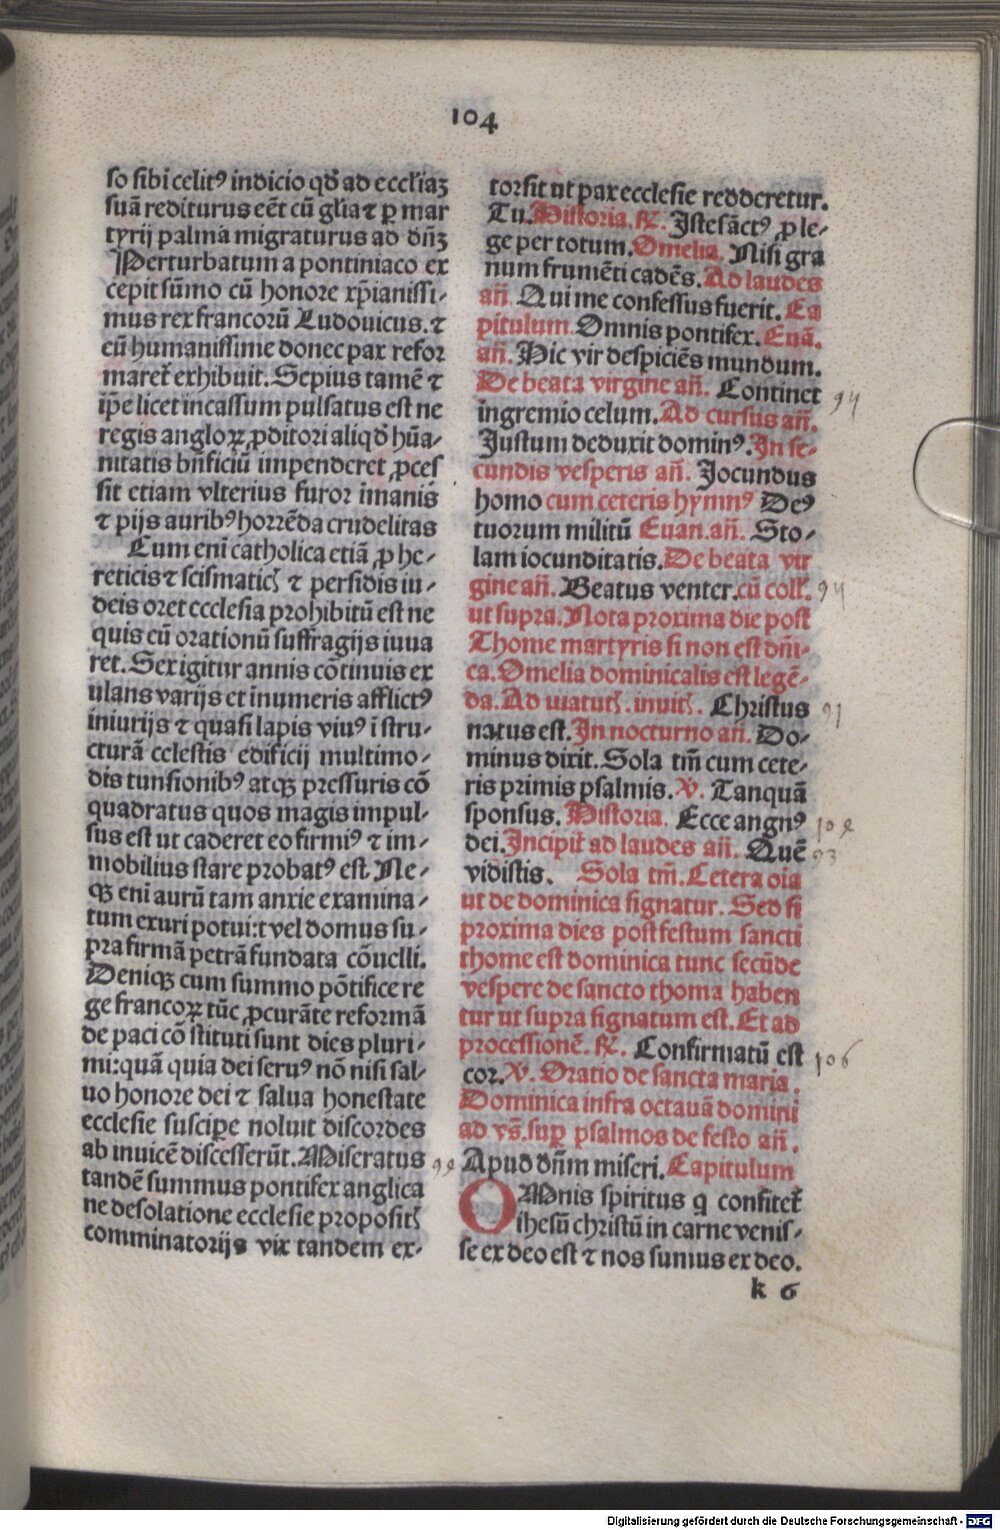 104
so sibi celitꝰ indicio qđ ad eccl'iaꝫ
suã rediturus eēt cũ gl'ia ⁊ ꝑ mar
tyrij palmã migraturus ad dñꝫ
Perturbatum a pontiniaco ex
cepit sũmo cũ honore xp̃ianissi-
mus rex francorũ Ludouicus. ⁊
eũ humanissime donec pax refor
maret̃ exhibuit. Sepius tamẽ ⁊
ip̃e licet incassum pulsatus est ne
regis angloꝝ ꝓditori aliqđ hũa-
nitatis bñficiũ impenderet ꝓces
sit etiam vlterius furor ĩmanis
⁊ pijs auribꝰ horrẽda crudelitas
Cum eni catholica etiã ꝓ he-
reticis ⁊ scismaticꝭ ⁊ perfidis iu-
deis oret ecclesia prohibitũ est ne
quis eũ orationũ suffragijs iuua
ret. Sex igitur annis cõtinuis ex
ulans varijs et ĩnumeris afflictꝰ
iniurijs ⁊ quasi lapis viuꝰ ĩ stru-
cturã celestis edificij multimo-
dis tunsionibꝰ atqꝫ pressuris cõ
quadratus quos magis impul-
sus est ut caderet eo firmiꝰ ⁊ im-
mobilius stare probatꝰ est. Ne-
qꝫ eni aurũ tam anxie examina-
tum exuri potuit vel domus su-
pra firmã petrã fundata cõuelli.
Deniqꝫ cum summo põtifice re
ge francoꝝ tũc ꝓcurãte reformã
de paci cõstituti sunt dies pluri-
mi: quã quia dei seruꝰ nõ nisi sal-
uo honore dei ⁊ salua honestate
ecclesie suscipe noluit discordes
ab inuicẽ discesserũt. Miseratus
tandẽ summus pontifex anglica
ne desolatione ecclesie propositꝭ
comminatorijs vix tandem ex-
torsit ut pax ecclesie redderetur.
Tu. Historia. ℟. Iste sãctꝰ ꝓ le-
ge per totum. Omelia. Nisi gra
num frumẽti cadẽs. Ad laudes
añ. Qui me confessus fuerit. Ca
pitulum. Omnis pontifex. Euã.
añ. Hic vir despiciẽs mundum.
De beata virgine añ. Continet 94
in gremio celum. Ad cursus añ.
Justum deduxit dominꝰ. In se-
cundis vesperis añ. Jocundus
homo cum ceteris hymnꝰ Deꝰ
tuorum militũ Euan. añ. Sto-
lam iocunditatis. De beata vir
gine añ. Beatus venter. cũ coll'. 94
ut supra. Nota proxima die post
Thome martyris si non est dñi-
ca. Omelia dominicalis est legẽ-
da. Ad matutꝭ. inuitꝭ. Christus 91
natus est. In nocturno añ. Do-
minus dixit. Sola tm̃ cum cete-
ris primis psalmis. ℣. Tanquã
sponsus. Historia. Ecce angnꝰ 102
dei. Incipit̃ ad laudes añ. Quẽ 93
vidistis. Sola tm̃. Cetera oĩa
ut de dominica signatur. Sed si
proxima dies post festum sancti
thome est dominica tunc secũde
vespere de sancto thoma haben
tur ut supra signatum est. Et ad
processionẽ. ℟. Confirmatũ est 106
cor. ℣. Oratio de sancta maria.
Dominica infra octauã domini
ad vs̃. sup̃ psalmos de festo añ.
99 Apud dñm miseri. Capitulum
OMnis spiritus q confitet̃
ihesũ christũ in carne venis-
se ex deo est ⁊ nos sumus ex deo.
k 6
Digitalisierung gefördert durch die Deutsche Forschungsgemeinschaft - DFG